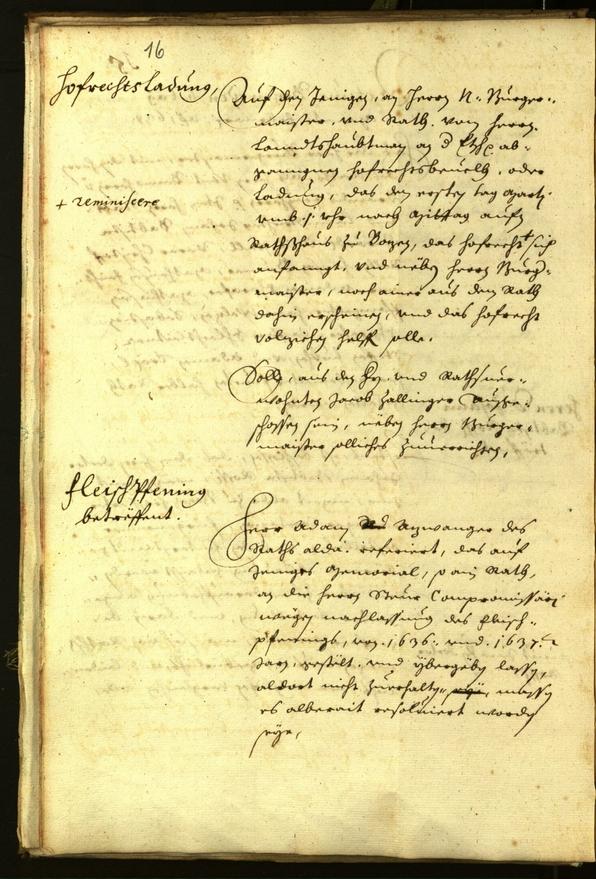 16
Hofrechtsladung,
Auf den Jenigen, an Herrn N: Burger-
maister, vnd Rath, von Herrn
Lanndtshaubtman an d Etsch ab-
ganngnen hofrechtsbeuelh, oder
Ladung, das den ersten tag Marti
+ reminiscere
vmb .j. vhr nach Mittag aufm
Rathshaus zu Bozen, das hofrecht + sich
anfanngt, vnd neben Herrn Burg-
maister, noch ainer aus dem Rath
dahin erscheinen, vnd das hofrecht
volziehen helffen solle.
Solle, aus den vnd Rathsuer-
wohnten Jacob Zallinger Ausge-
schossen sein, neben Herrn Burger-
maister solliches Zuuerrichten,
Fleisch Pfening
betreffent.
Herr Adam Anzwanger des
Raths alda. referiert, das auf
Jeniges Memorial, so ain Rath,
an die Herrn Steur Compromissari
wegen nachlassung des Fleisch-
pfennings, von .1636. vnd .1637.
Jarn, gestelt, vnd ybergeben lassen,
aldort nicht Zuerhalten, massen
es alberait resoluiert worden
seye,